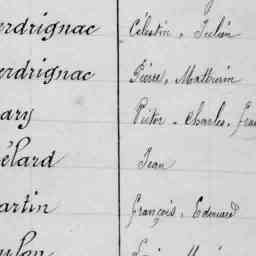 erdrignac Célestin, Julien
erdrignac Pierre, Mathurin
ary Victor, Charles, Fra
élard Jean
artin François, Edouard